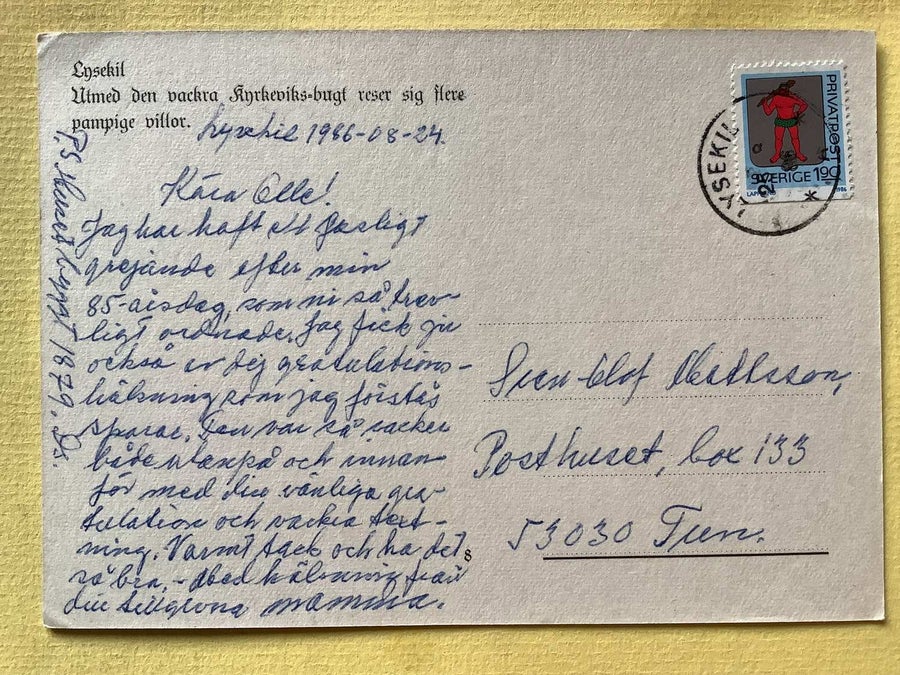 Lysekil
Utmed den vackra Kyrkeviks-bugt reser sig flere
pampige villor.
Lysekil 1986-08-24.
Kära Olle!
Jag har haft ett gasligt
grejande efter min
85-årsdag, som ni så trev-
ligt ordnade. Jag fick ju
också av dig gratulations-
hälsning som jag förstås
sparar. Den var så vacker
både utanpå och innan
för med din vänliga gra-
tulation och vackra teck-
ning. Varmt tack och ha det
så bra, - Med hälsning från
din tillgivna mamma.
P.S. Huset byggt 1879. Ds.
8
PRIVATPOST
SVERIGE 1.90
1986
LYSEKIL
Sven-Olof Mattsson,
Posthuset, box 133
53030 Tun.